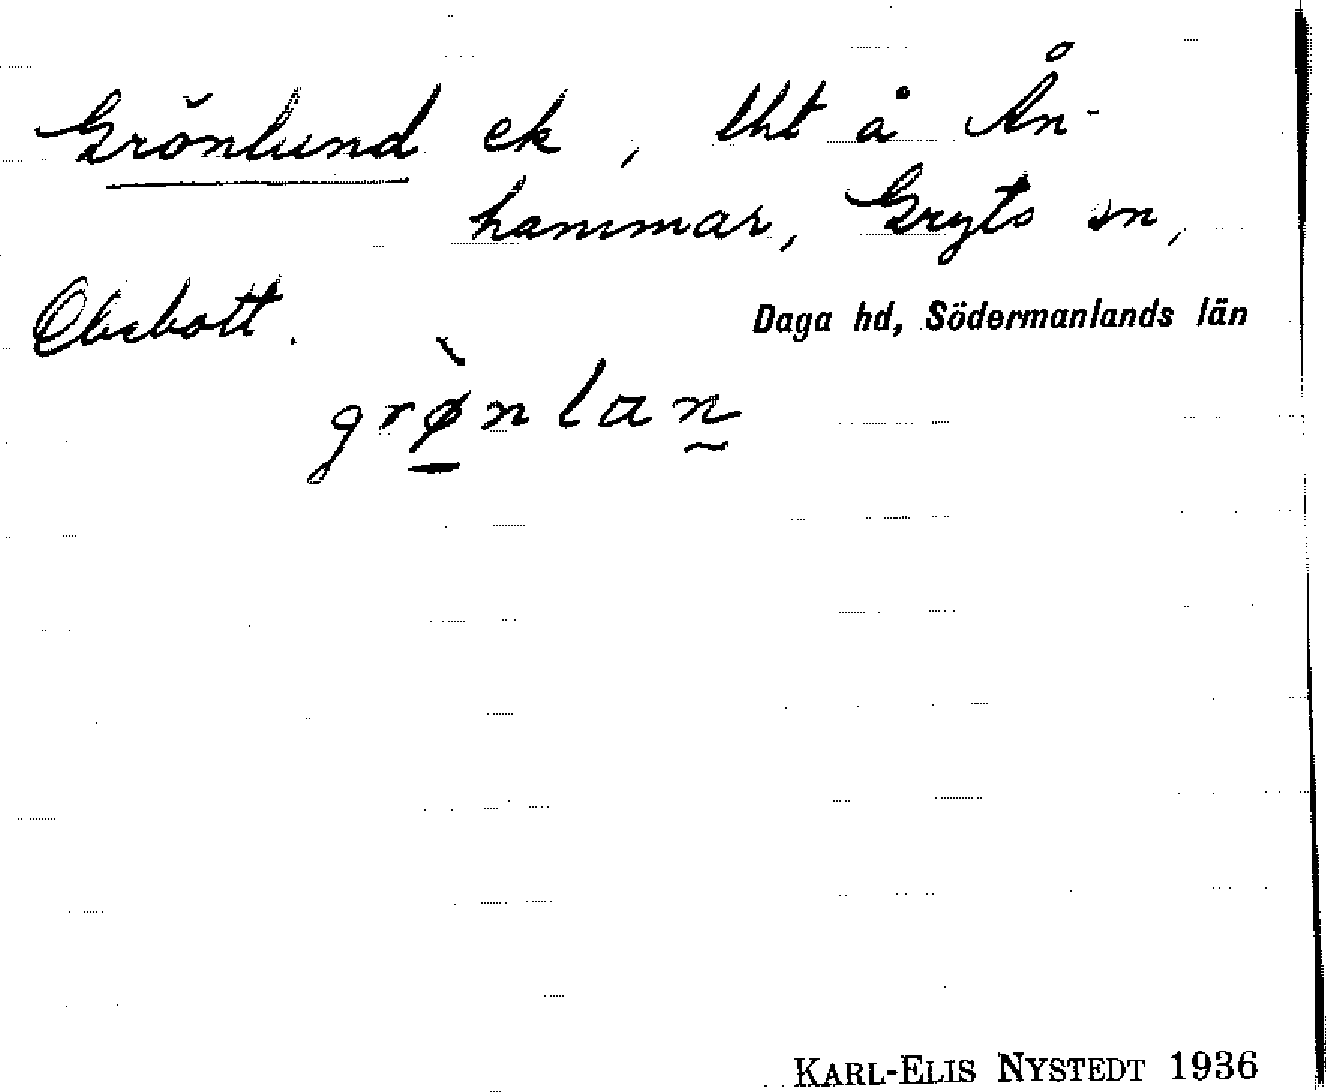 Grönlund ek, tht å Ån-
hammar, Gryts sn,
Obebott.
Daga hd, Södermanlands län
grønlan
KARL-ELIS NYSTEDT 1936